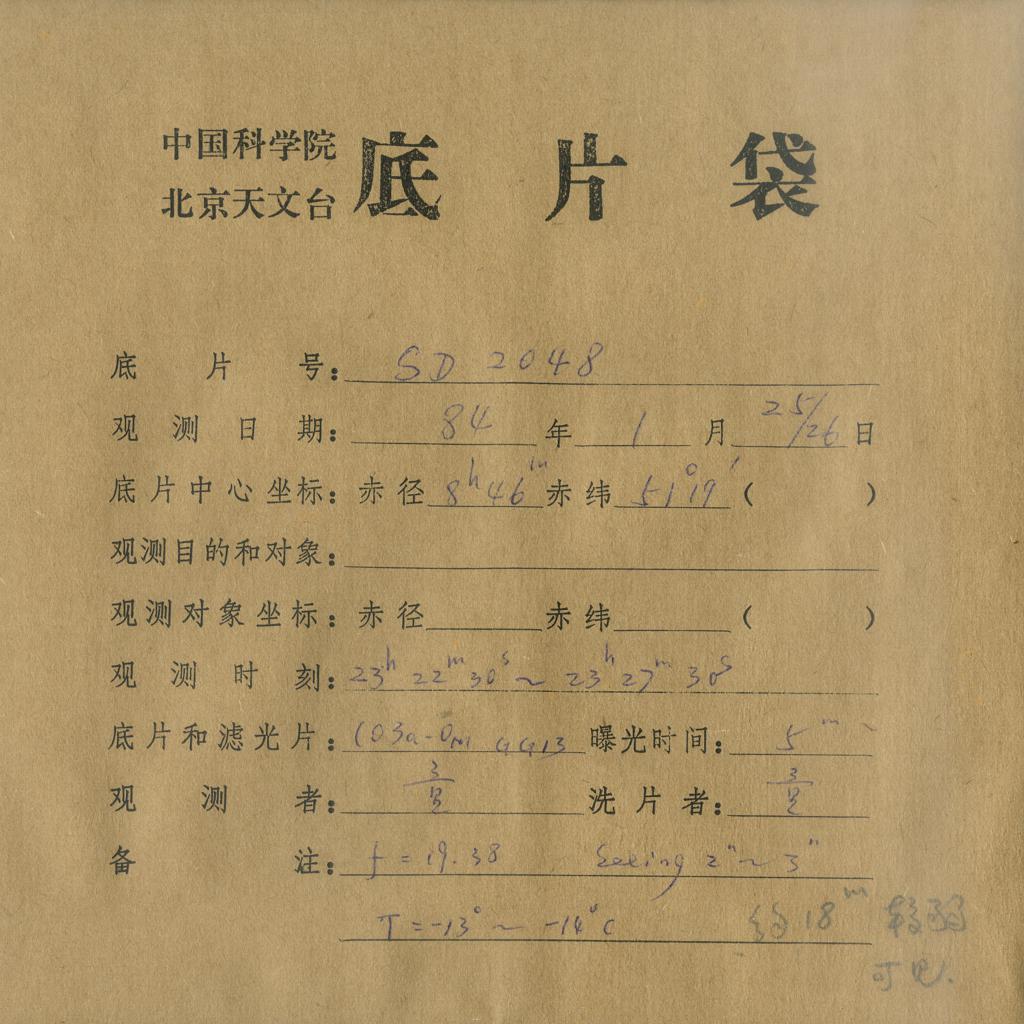 中国科学院
北京天文台
底片袋
底片号: SD 2048
观测日期: 84年1月25/26日
底片中心坐标: 赤径 8h46m 赤纬 51°19′ ( )
观测目的和对象:
观测对象坐标: 赤径 赤纬 ( )
观测时刻: 23h 22m 30s ~ 23h 27m 30s
底片和滤光片: 103a-O GG13 曝光时间: 5m
观测者: 洗片者:
备注: f = 19.38 Seeing 2" ~ 3"
T = -13° ~ -14°C 约18m 较弱
可见.